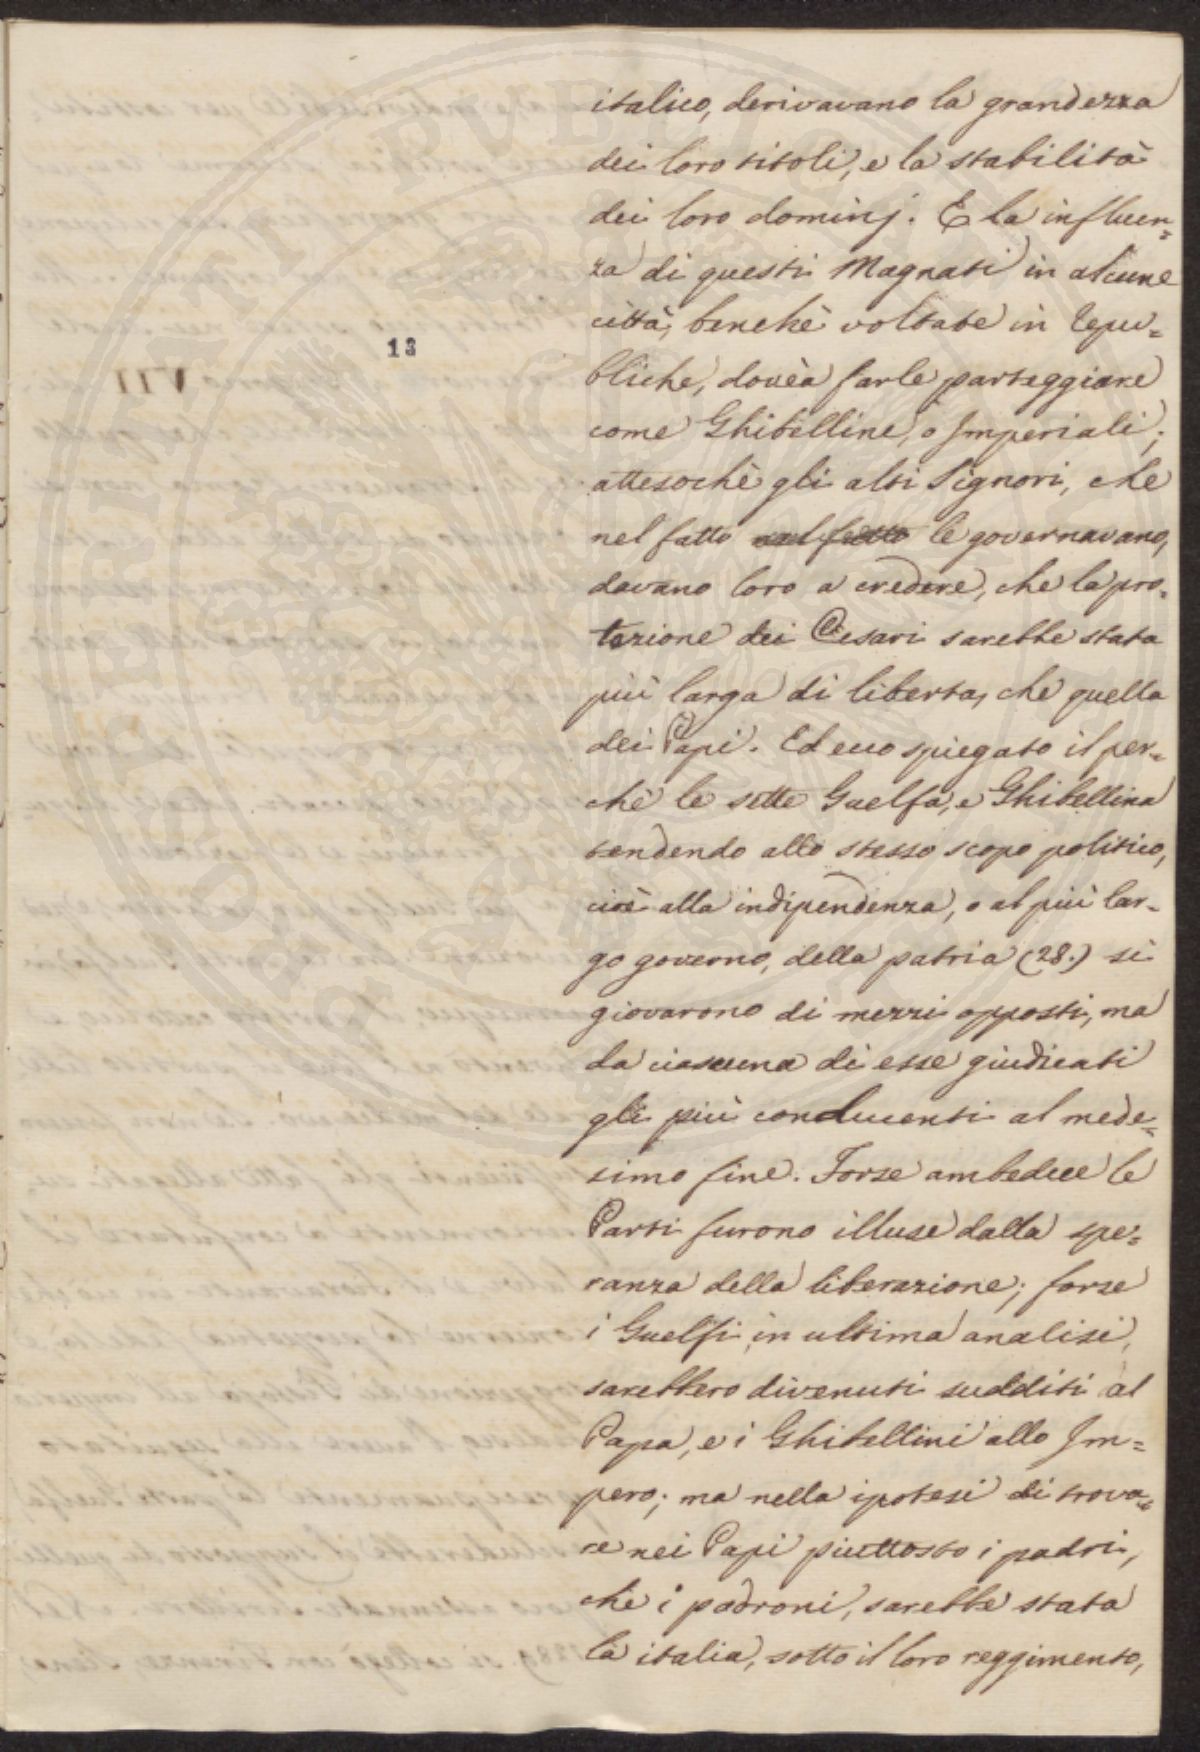 italico, derivavano la grandezza
dei loro titoli, e la stabilità
dei loro dominj. E la influen=
za di questi Magnati in alcune
città, benchè voltate in Repu=
13
bliche, dovèa farle parteggiare
come Ghibelline, o Imperiali;
attesochè gli alti Signori, che
nel fatto nel fatto le governavano,
davano loro a credere, che la pro=
tezione dei Cesari sarebbe stata
più larga di libertà, che quella
dei Papi. Ed ecco spiegato il per=
chè le sette Guelfa, e Ghibellina
tendendo allo stesso scopo politico,
cioè alla indipendenza, o al più lar=
go governo, della patria (28.) si
giovarono di mezzi opposti, ma
da ciascuna di esse giudicati
gli più conducenti al mede=
simo fine. Forse ambedue le
Parti furono illuse dalla spe=
ranza della liberazione; forse
i Guelfi, in ultima analisi,
sarebbero divenuti sudditi al
Papa, e i Ghibellini allo Im=
pero; ma nella ipotesi di trova=
re nei Papi piuttosto i padri,
che i padroni, sarebbe stata
la italia, sotto il loro reggimento,